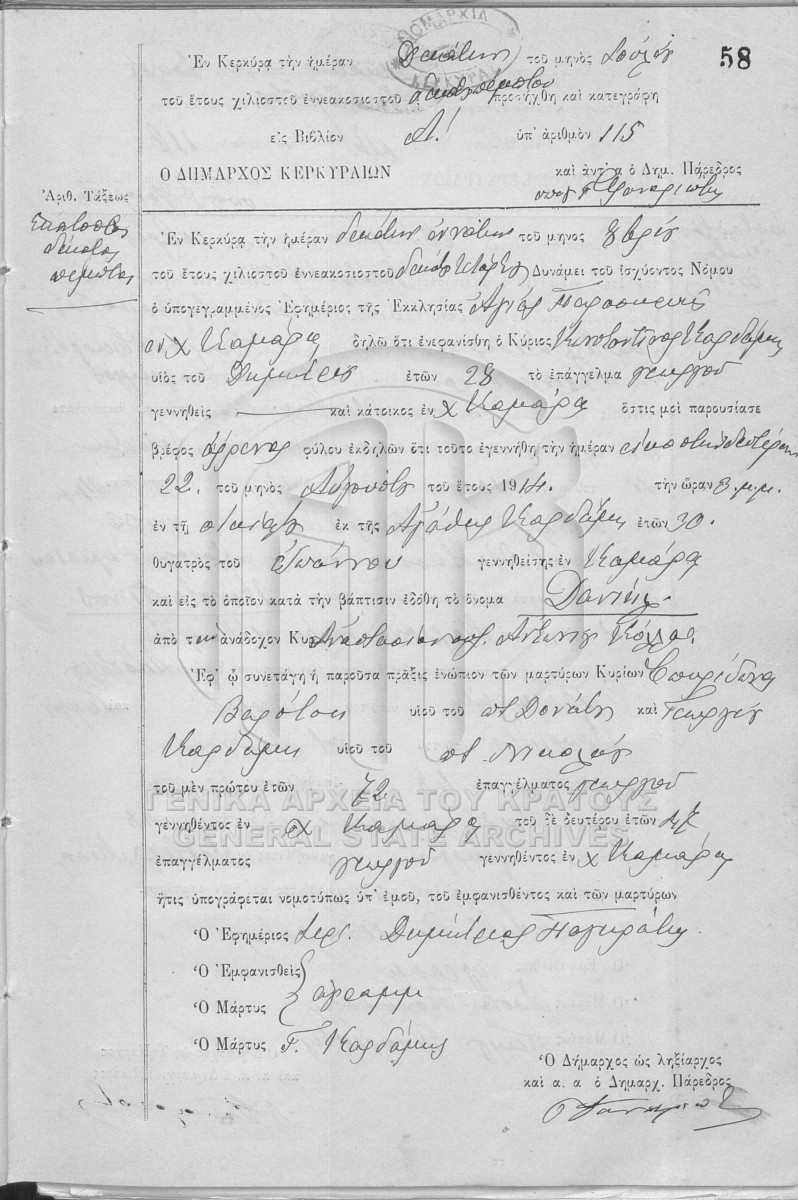 58
Ἐν Κερκύρᾳ τὴν ἡμέραν Δεκάτην τοῦ μηνὸς Ἰουλίου
τοῦ ἔτους χιλιοστοῦ ἐννεακοσιοστοῦ δεκάτου πέμπτου προσήχθη καὶ κατεγράφη
εἰς Βιβλίον Α! ὑπ' ἀριθμὸν 115
Ο ΔΗΜΑΡΧΟΣ ΚΕΡΚΥΡΑΙΩΝ
καὶ ἀντ' α ὁ Δημ. Πάρεδρος
Ἀριθ. Τάξεως
Ἑκατοστὸς
δέκατος
πέμπτος
Ἐν Κερκύρᾳ τὴν ἡμέραν δεκάτην ἐννάτην τοῦ μηνὸς 8βρίου
τοῦ ἔτους χιλιοστοῦ ἐννεακοσιοστοῦ Δυνάμει τοῦ ἰσχύοντος Νόμου
ὁ ὑπογεγραμμένος Ἐφημέριος τῆς Ἐκκλησίας Ἁγίας Παρασκευῆς
ἐν χ Καμάρα δηλῶ ὅτι ἐνεφανίσθη ὁ Κύριος Κωνσταντῖνος Καρδάμης
υἱὸς τοῦ Δημητρίου ἐτῶν 28 τὸ ἐπάγγελμα γεωργοῦ
γεννηθεὶς καὶ κάτοικος ἐν χ Καμάρα ὅστις μοὶ παρουσίασε
βρέφος ἄρρενος φύλου ἐκδηλῶν ὅτι τοῦτο ἐγεννήθη τὴν ἡμέραν εἰκοστὴν δευτέραν
22. τοῦ μηνὸς Αὐγούστου τοῦ ἔτους 1914. τὴν ὥραν 8 μ.μ.
ἐν τῇ οἰκίᾳ ἐκ τῆς Ἀγάθης Καρδάμη ἐτῶν 30.
θυγατρὸς τοῦ Ἰωάννου γεννηθείσης ἐν Καμάρα
καὶ εἰς τὸ ὁποῖον κατὰ τὴν βάπτισιν ἐδόθη τὸ ὄνομα Δανιήλ
ἀπὸ τὸν ἀνάδοχον Κυρ Ἀναστάσιον Ἀντωνίου Κόλλα.
Ἐφ' ᾧ συνετάγη ἡ παροῦσα πρᾶξις ἐνώπιον τῶν μαρτύρων Κυρίων Σπυρίδωνα
Βαρότση υἱοῦ τοῦ ποτ Δονάτου καὶ Γεωργίου
Καρδάμη υἱοῦ τοῦ ποτ Νικολάου
τοῦ μὲν πρώτου ἐτῶν 72 ἐπαγγέλματος γεωργοῦ
ΓΕΝΙΚΑ ΑΡΧΕΙΑ ΤΟΥ ΚΡΑΤΟΥΣ
γεννηθέντος ἐν χ Καμάρα τοῦ δὲ δευτέρου ἐτῶν 47
GENERAL STATE ARCHIVES
ἐπαγγέλματος γεωργοῦ γεννηθέντος ἐν χ Καμάρα
ἥτις ὑπογράφεται νομοτύπως ὑπ' ἐμοῦ, τοῦ ἐμφανισθέντος καὶ τῶν μαρτύρων
Ὁ Ἐφημέριος Ἱερ. Δημήτριος Παγκράτης
Ὁ Ἐμφανισθεὶς
ἀγράμμ
Ὁ Μάρτυς
Ὁ Μάρτυς Γ. Καρδάμης
Ὁ Δήμαρχος ὡς ληξίαρχος
καὶ α. α ὁ Δημαρχ. Πάρεδρος